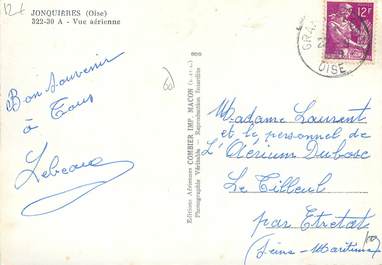 12+
JONQUIÈRES (Oise)
322-30 A - Vue aérienne
Bon souvenir
à Tous
Lebeau
Editions Aériennes COMBIER IMP. MACON (S.-et-L.)
Photographie Véritable - Reproduction Interdite
12F
OISE
Madame Laurent
et le personnel de
L'Aérium Dubosc
Le Tilleul
par Etretat
(Seine-Maritime)